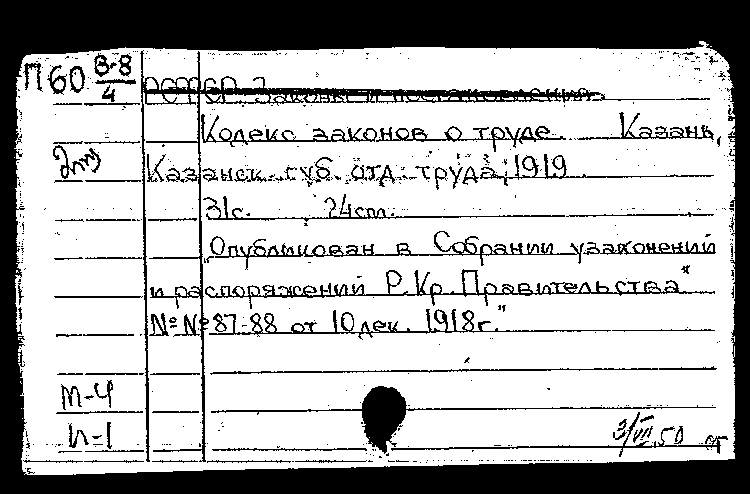 П60 В-8/4
РСФСР. Законы и постановления.
Кодекс законов о труде. Казань,
Казанск. губ. отд. труда, 1919.
31с. 24см.
"Опубликован в Собрании узаконений
и распоряжений Р. Кр. Правительства"
№№ 87-88 от 10 дек. 1918г."
м-4
и-1
3/VIII.50